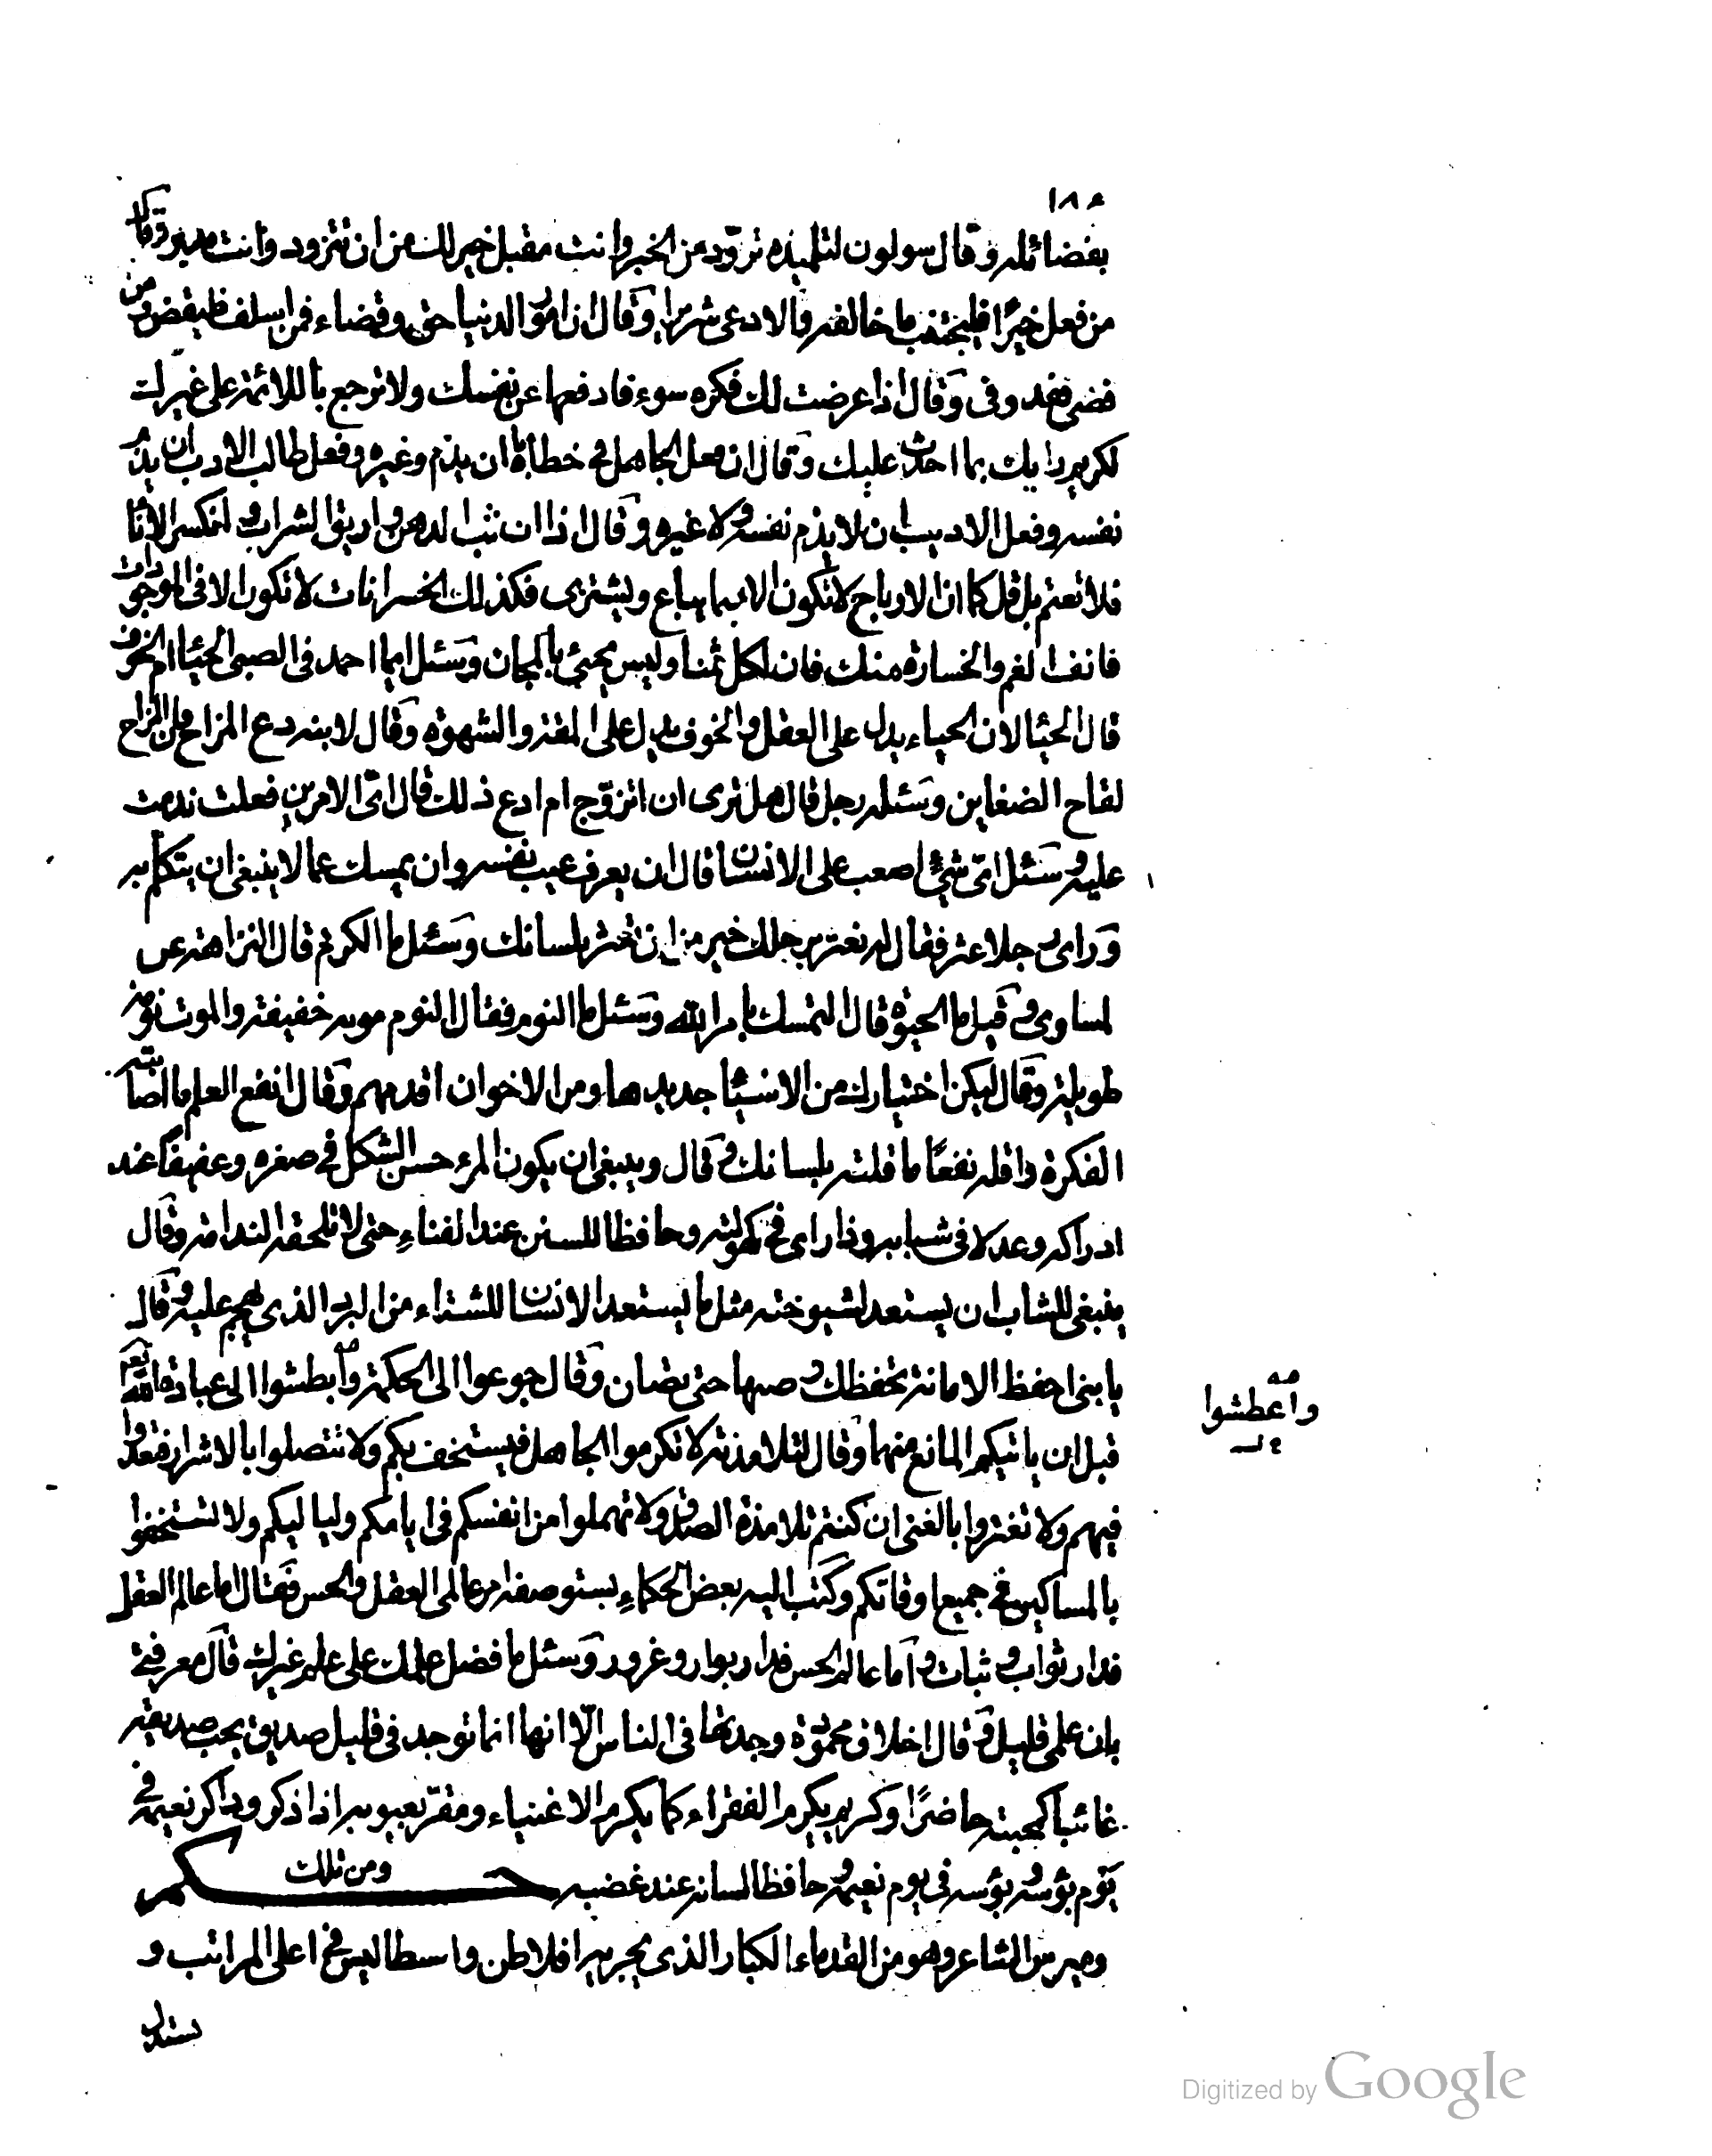 ١٨٤
بفضائله وقال سولون لتلميذه تزوّد من الخير وانت مقبل خير لك من ان تتزود وانت مدبر وقال
من فعل خيرا فليجتنب ما خالفه والا دعى شريرا وقال ان امور الدنيا حق وقضاء فمن اسلف فليقض ومن
قضى فقد وفى وقال اذا عرضت لك فكرة سوء فادفعها عن نفسك ولا ترجع باللائمة على غيرك
لكن رايك بما احدث عليك وقال ان فعل الجاهل فى خطائه ان يذم غيره وفعل طالب الادب ان يذم
نفسه وفعل الاديب ان لا يذم نفسه ولا غيره وقال اذا انثب الدهن واريق الشراب وانكسر الاناء
فلا تغتم بل قل كما ان الارباح لا تكون الا بما يباع ويشترى فكذلك الخسرانات لا تكون الا فى الموجودات
فانف الغم والخسارة منك فان لكل ثمنا وليس يجئ بالمجان وسئل ايما احمد فى الصبى الحياء ام الخوف
قال الحياء لان الحياء يدل على العقل والخوف يدل على المقة والشهوة وقال لابنه دع المزاح فان المزاح
لقاح الضغاين وسئله رجل قال هل ترى ان اتزوّج ام ادع ذلك قال اىّ الامرين فعلت ندمت
عليه وسئل اىّ شئ اصعب على الانسان قال ان يعرف عيب نفسه وان يمسك عما لا ينبغى ان يتكلم به
وراى رجلا عثر فقال له تعثر برجلك خير من ان تعثر بلسانك وسئل ما الكرم قال النزاهة عن
المساوى وقيل ما الحيوة قال التمسك بامر الله وسئل ما النوم فقال النوم موتة خفيفة والموت نومة
طويلة وقال ليكن اختيارك من الاشياء جديدها ومن الاخوان اقدمهم وقال انفع العلم ما اصابته
الفكرة واقله نفعًا ما قلته بلسانك وقال وينبغى ان يكون المرء حسن الشكل فى صغره وعفيفا عند
ادراكه وعدلا فى شبابه وذا راى فى كهولته وحافظا للسنن عند الفناء حتى لا تلحقه الندامة وقال
ينبغى للشاب ان يستعد لشيوخته مثل ما يستعد الانسان للشتاء من البرد الذى يهجم عليه وقال
يا بنى احفظ الامانة تحفظك وصنها حتى تصان وقال جوعوا الى الحكمة وابطشوا الى عبادة الله تعه
واعطشوا
قبل ان ياتيكم المانع منهما وقال لتلامذته لا تكرموا الجاهل فيستخف بكم ولا تتصلوا بالاشرار فتعدوا
فيهم ولا تغتروا بالغنى ان كنتم تلامذة الصدق ولا تهملوا من انفسكم فى ايامكم ولياليكم ولا تستخفوا
بالمساكين فى جميع اوقاتكم وكتب اليه بعض الحكماء يستوصفه امر عالمى العقل والحس فقال اما عالم العقل
فدار ثواب وثبات واما عالم الحس فدار بوار وغرور وسئل ما فضل علمك على علم غيرك قال معرفتى
بان علمى قليل وقال اخلاق محمودة وجدتها فى الناس الّا انها انما توجد فى قليل صديق يحب صديقه
غائبا كمحبته حاضرًا وكريم يكرم الفقراء كما يكرم الاغنياء ومقرّ بعيوبه اذا ذكر وذاكر نعيمه فى
يوم بؤسه وبؤسه فى يوم نعيمه وحافظا لسانه عند غضبه ومن تلك حكم
وميرس الشاعر وهو من القدماء الكبار الذى يجريه افلاطن واسطاليس فى اعلى المراتب و
يستدل
Digitized by Google